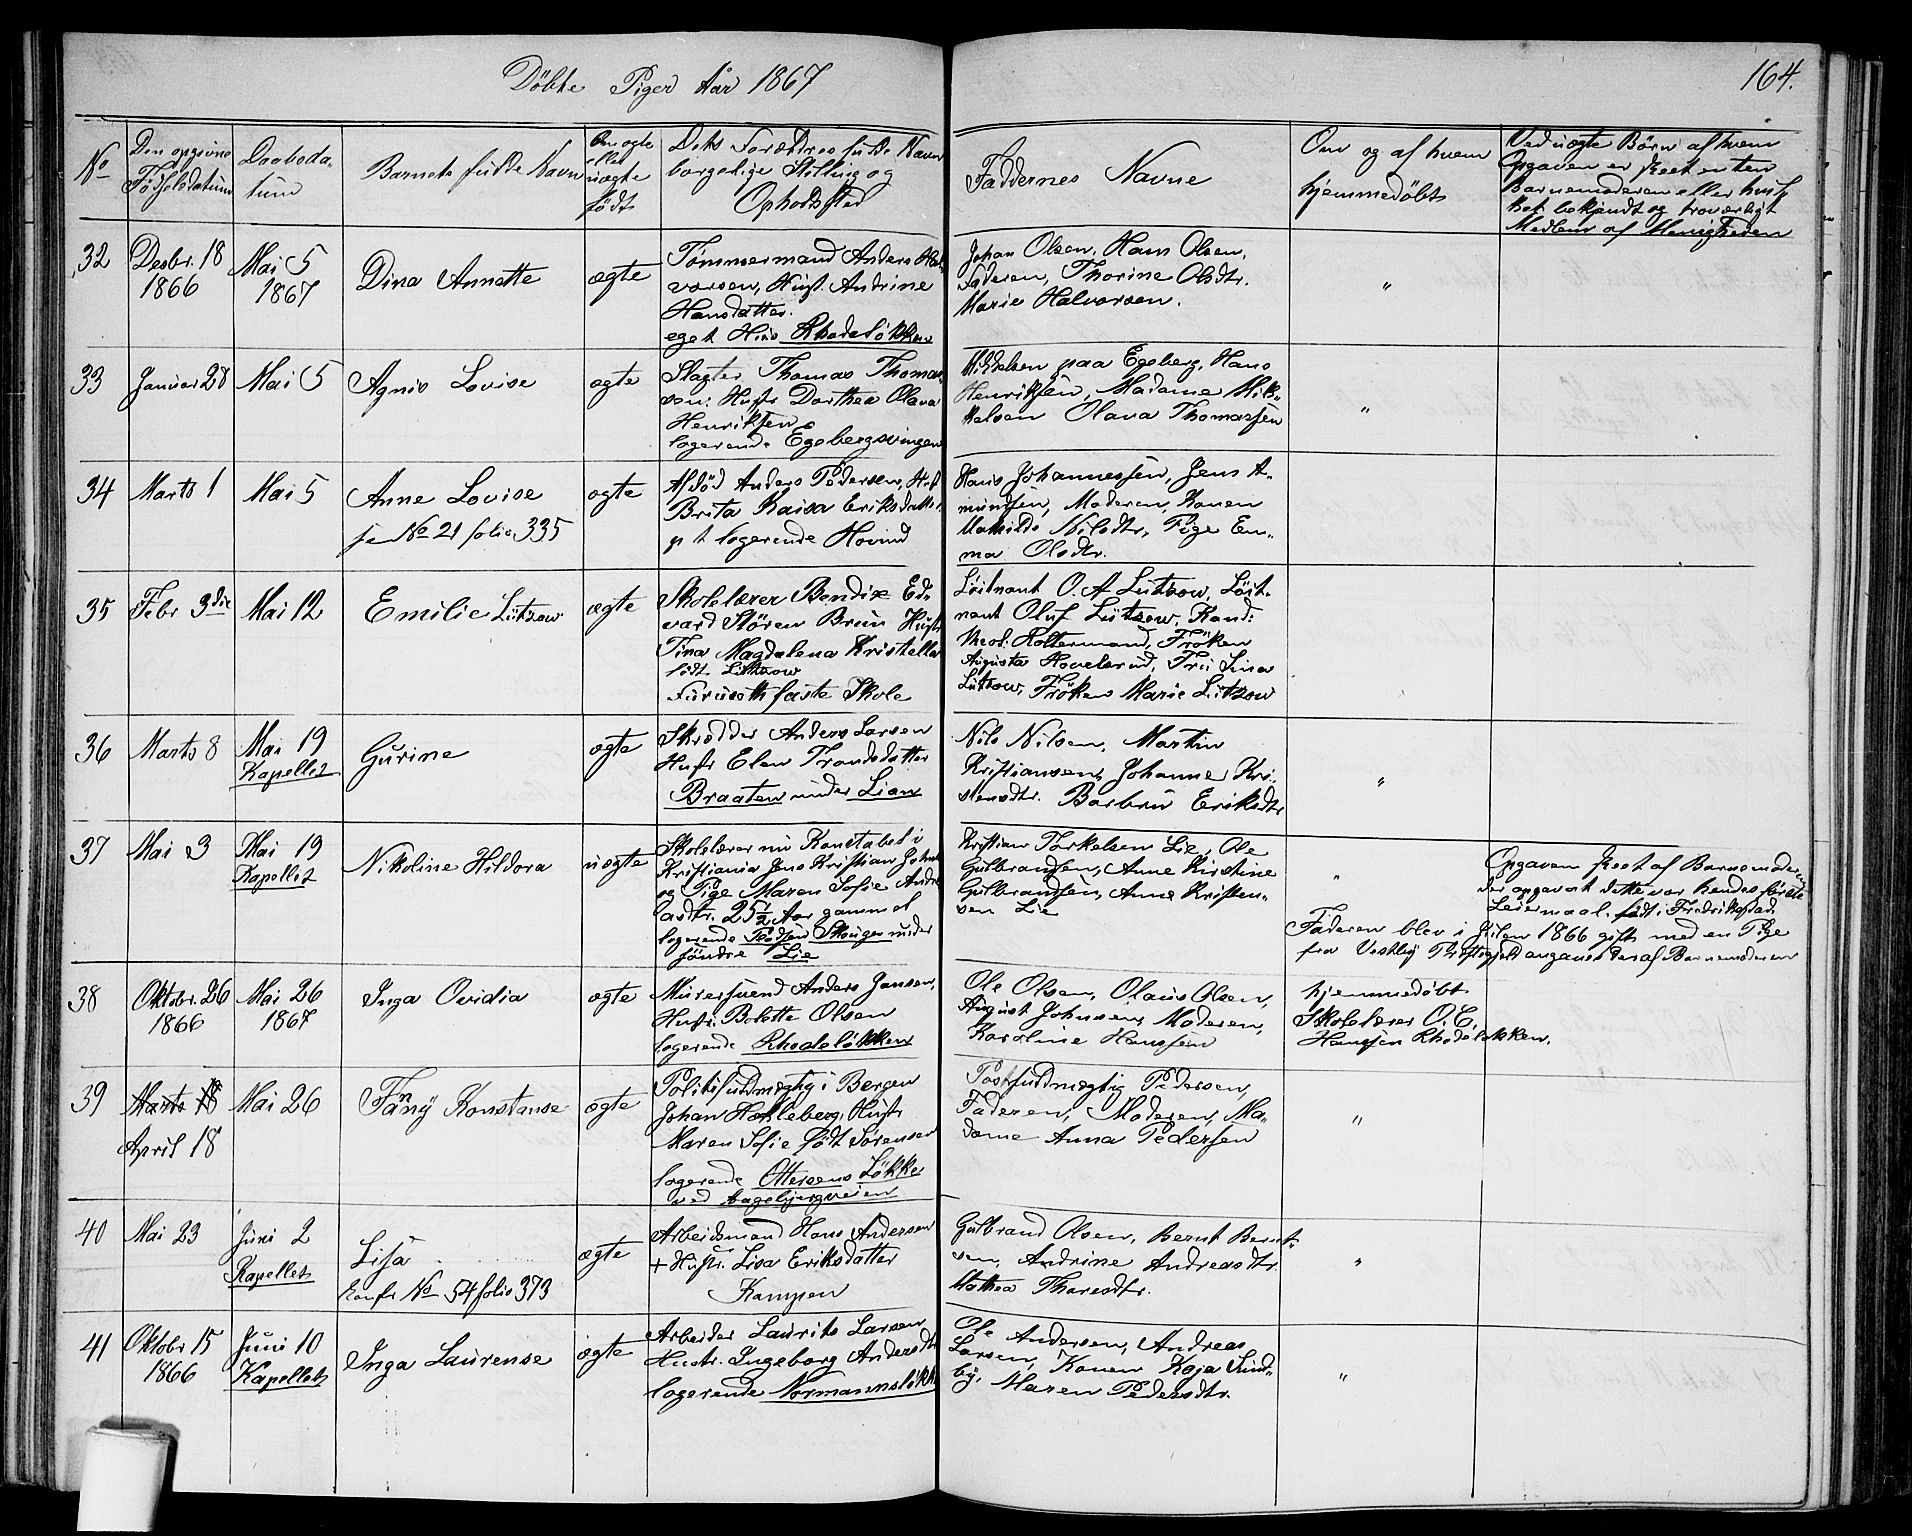 Döbte Piger Aar 1867
164.
No
Den opgivne
Födselsdatum
Daabsda-
tum
Barnets fulde Navn
Om ægte
eller
uægte
födt
Dets Forældres fulde Navn
borgelige Stilling og
Opholdssted
Faddernes Navne
Om og af hvem
hjemmedöbt
Ved uægte Börn af hvem
Opgaven er skeet enten
Barnemoderen eller hvis
bekjendt og troværdigt
Medlem af Menigheden
32
Decbr. 18
1866
Mai 5
1867
Dina Annette
ægte
Tömmermand Anders Hal-
vorsen, Hust. Andrine
Hansdatter.
eget Hus Rhodelökken
Johan Olsen, Hans Olsen,
Faderen, Thorine Olsdtr.
Marie Halvorsen.
"
33
Januar 28
Mai 5
Agnis Lovise
ægte
Slagter Thomas Thomas-
sen. Hustr Dorthea Olava
Henriksen
logerende Egebergsvingen
Mikkelsen paa Egeberg, Hans
Henriksen, Madame Mik-
kelsen Olava Thomassen
"
34
Marts 1
Mai 5
Anne Lovise
se No 21 folio 335
ægte
Afdöd Anders Pedersen, Hust
Brita Kaisa Eriksdatter
p t logerende Hovind
Hans Johannessen, Jens A-
mundsen, Moderen, Konen
Mathilde Nilsdtr, Pige Em-
ma Olsdtr.
35
Febr 3die
Mai 12
Emilie Lützow
ægte
Skolelærer Bendix Ed-
vard Stören Bruun Hustr
Tina Magdalena Kristella
födt Lützow
Furuseth faste Skole
Löitnant O. A Lützow, Löit-
nant Oluf Lützow, Kand:
theol: Holtermand, Fröken
Augusta Hovelsrud, Fru Lina
Lützow, Fröken Marie Lützow
36
Marts 8
Mai 19
Kapellet
Gurine
ægte
Skrædder Anders Larsen
Hustr Elen Trondsdatter
Braaten under Lian
Nils Nilsen, Martin
Kristiansen, Johanne Kri-
stensdtr. Barbru Eriksdtr
"
37
Mai 3
Mai 19
Kapellet
Nikoline Hildora
uægte
Skolelærer nu Konstabel i
Kristiania Jens Kristian Johns
og Pige Maren Sofie Andre-
asdtr. 25½ Aar gammel
logerende Skougen under
söndre Lie
Kristian Torkelsen Lie, Ole
Gulbrandsen, Anne Kirstine
Gulbrandsen, Anne Kristen-
sen Lie
"
Opgaven skeet af Barnemoderen
der opgav at dette var hendes förste
Leiermaal. födt i Fredrikstad.
Faderen blev i Julen 1866 gift med en Pige
fra Vestby Præstegjeld angaves der af Barnemoderen
38
Oktobr. 26
1866
Mai 26
1867
Inga Ovidia
ægte
Murersvend Anders Jansen,
Hustr. Bolette Olsen
logerende Rhodelökken
Ole Olsen, Olaus Olsen,
August Johnsen, Moderen,
Karoline Hanssen
hjemmedöbt
Skolelærer O. C.
Hanssen Rhodelökken.
39
Marts 18
April 18
Mai 26
Fanny Konstanse
ægte
Politifuldmægtig i Bergen
Johan Hakleberg, Hustr
Maren Sofie födt Sörensen
logerende Ottersens Lökke
ved Aagebjergveien
Postfuldmægtig Pedersen,
Faderen, Moderen, Ma-
dame Anna Pedersen
"
40
Mai 23
Juni 2
Kapellet
Lisa
konfr No 54 folio 373
ægte
Arbeidsmand Hans Andersen
+ Hustr. Lisa Eriksdatter
Kampen
Gulbrand Olsen, Bernt Bernt-
sen, Andrine Andreasdtr.
Mathea Tharesdtr.
"
41
Oktobr 15
1866
Juni 10
Kapellet
Inga Laurense
ægte
Arbeider Laurits Larsen
Hustr. Ingeborg Andersdtr
logerende Normannslökk
Ole Andersen, Andreas
Larsen, Konen Kaja Sund-
by, Maren Pedersdtr.
"